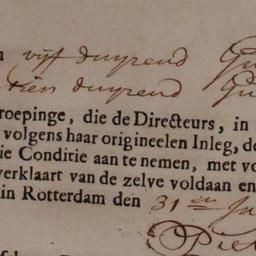 n vijf duyzend Gu
tien duyzend Gu
roepinge, die de Directeurs, in
volgens haar origineelen Inleg, de
ie Conditie aan te nemen, met vo
verklaart van de zelve voldaan en
in Rotterdam den 31en Ju
Piet